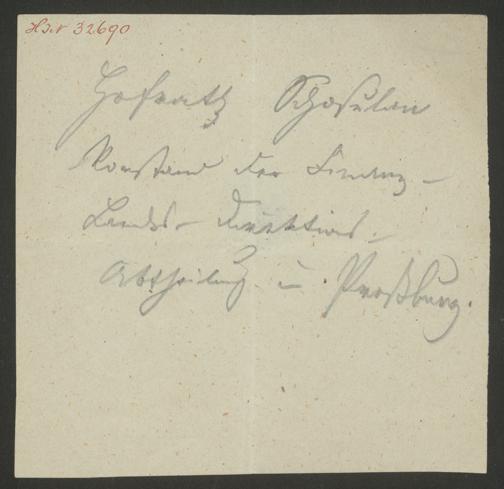 H.I.N 32690
Hofrath Schosulan
Vorstand der Finanz-
Landes-Direktions-
Abtheilung in Preßburg.